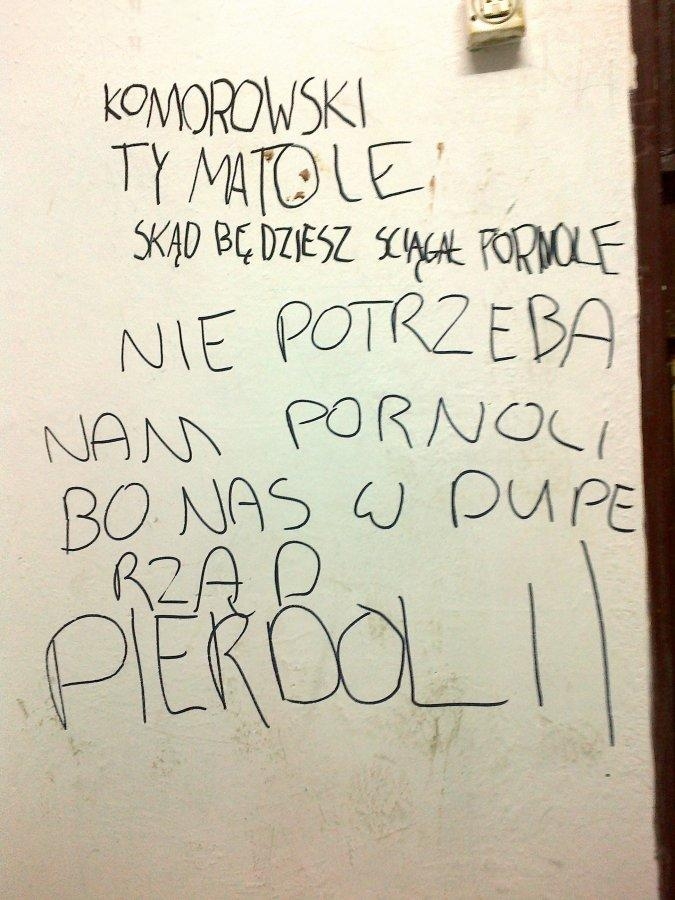 KOMOROWSKI
TY MATOLE
SKĄD BĘDZIESZ SCIĄGAŁ PORNOLE
NIE POTRZEBA
NAM PORNOLI
BO NAS W DUPE
RZĄD
PIERDOLI!